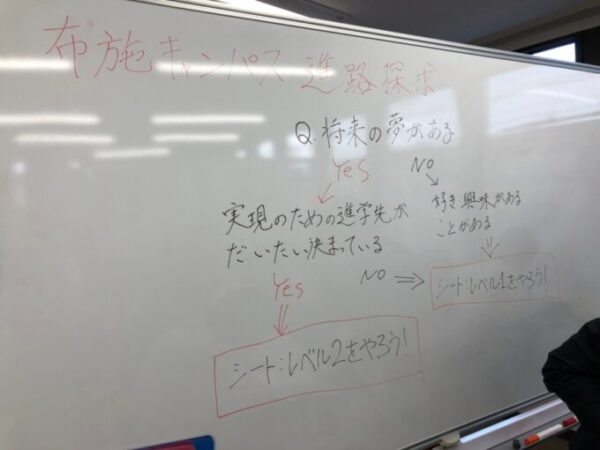 布施キャンパス 進路探求
Q. 将来の夢がある
Yes
No
実現のための進学先が
だいたい決まっている
好き・興味がある
ことがある
Yes
No
シート:レベル1をやろう!
シート:レベル2をやろう!